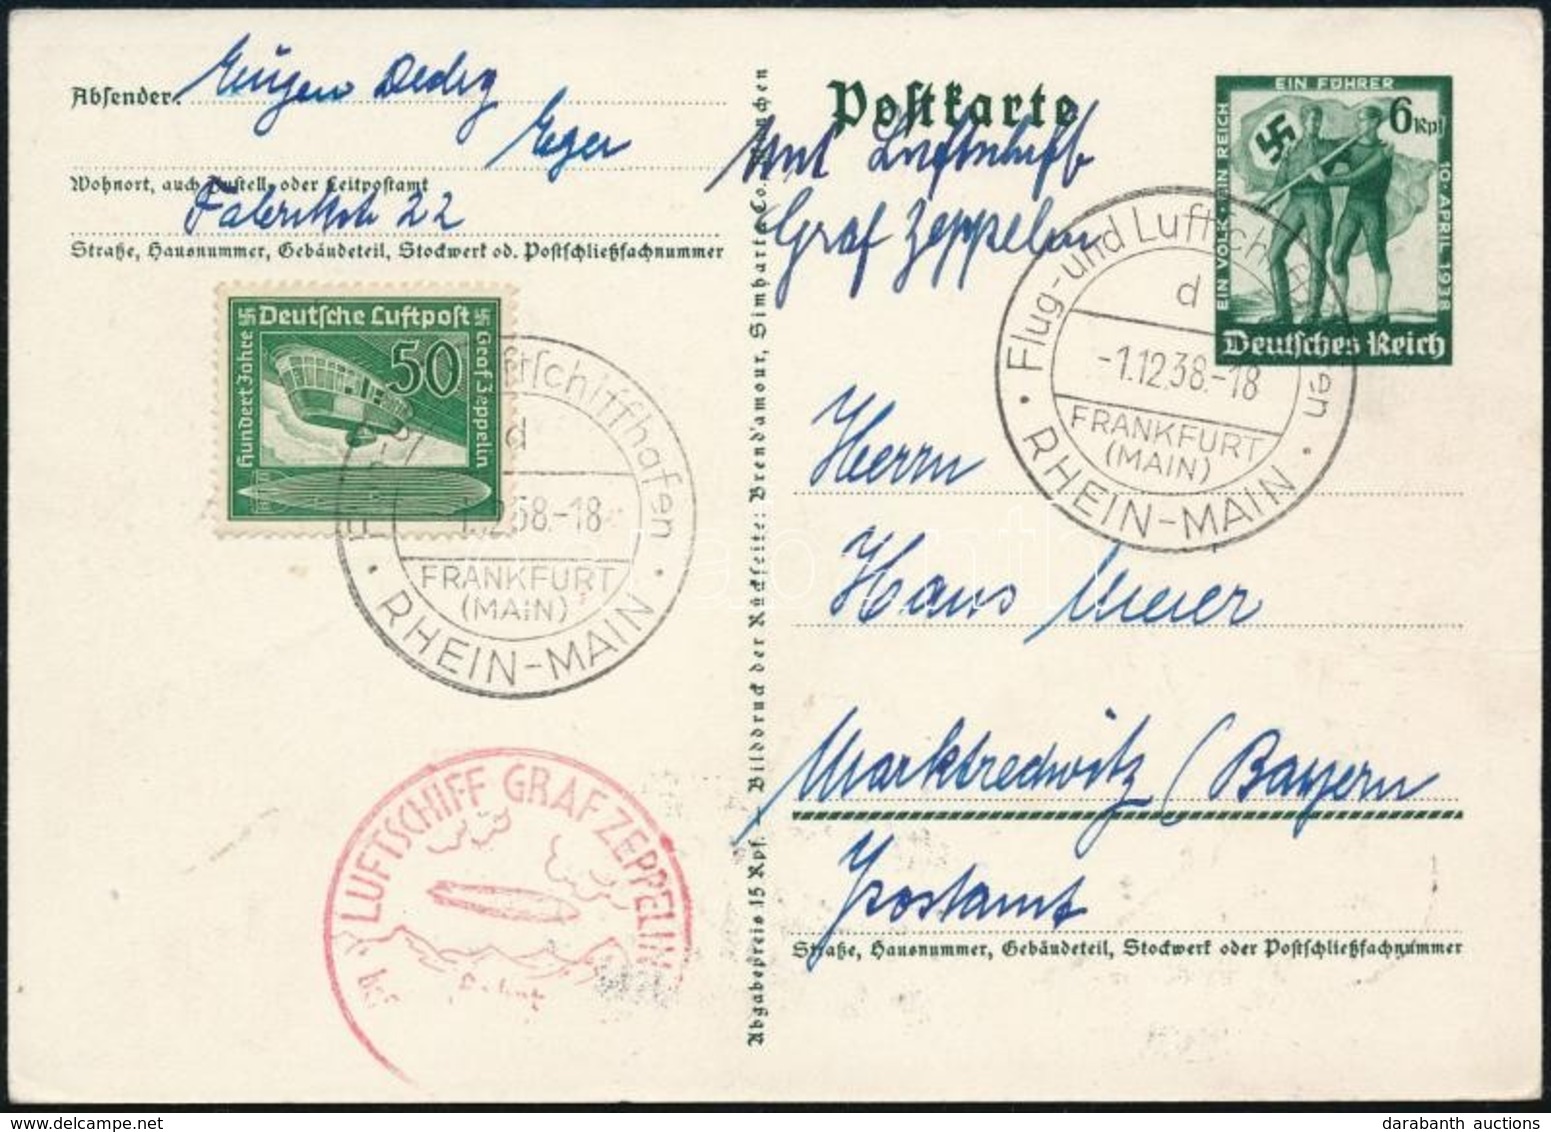 Absender: Eugen Dedig
Eger
Wohnort, auch Zustell- oder Leitpostamt
Fabrikstr 22
Straße, Hausnummer, Gebäudeteil, Stockwerk od. Postschließfachnummer
Postkarte
Mit Luftschiff
Graf Zeppelin
EIN FÜHRER
EIN VOLK · EIN REICH
10. APRIL 1938
6 Rpf
Deutsches Reich
Flug- und Luftschiffhafen
d
-1.12.38.-18
FRANKFURT
(MAIN)
· RHEIN-MAIN ·
Deutsche Luftpost
50
Hundert Jahre
Graf Zeppelin
Luftschiffhafen
d
1.12.38.-18
FRANKFURT
(MAIN)
· RHEIN-MAIN ·
Herrn
Hans Meier
Marktredwitz (Bayern
Postamt
Straße, Hausnummer, Gebäudeteil, Stockwerk oder Postschließfachnummer
Abgabepreis 15 Rpf. – Bilddruck der Rückseite: Brend'amour, Simhart & Co., München
LUFTSCHIFF GRAF ZEPPELIN
darabanth auctions